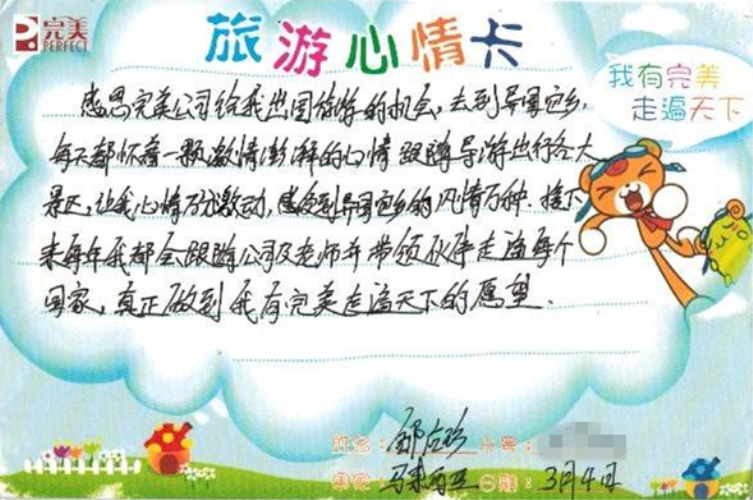 完美
PERFECT
旅游心情卡
我有完美
走遍天下
感恩完美公司给我出国旅游的机会，去到异国它乡，
每天都怀着一颗激情澎湃的心情跟随导游进行各大
景区，让我心情万分激动，感受到异国它乡的风情万种．接下
来每年我都会跟随公司及老师并带领伙伴走遍每个
国家，真正做到我有完美走遍天下的愿望．
姓名：邹 珍 卡号：
国家：马来西亚 日期：3月4日